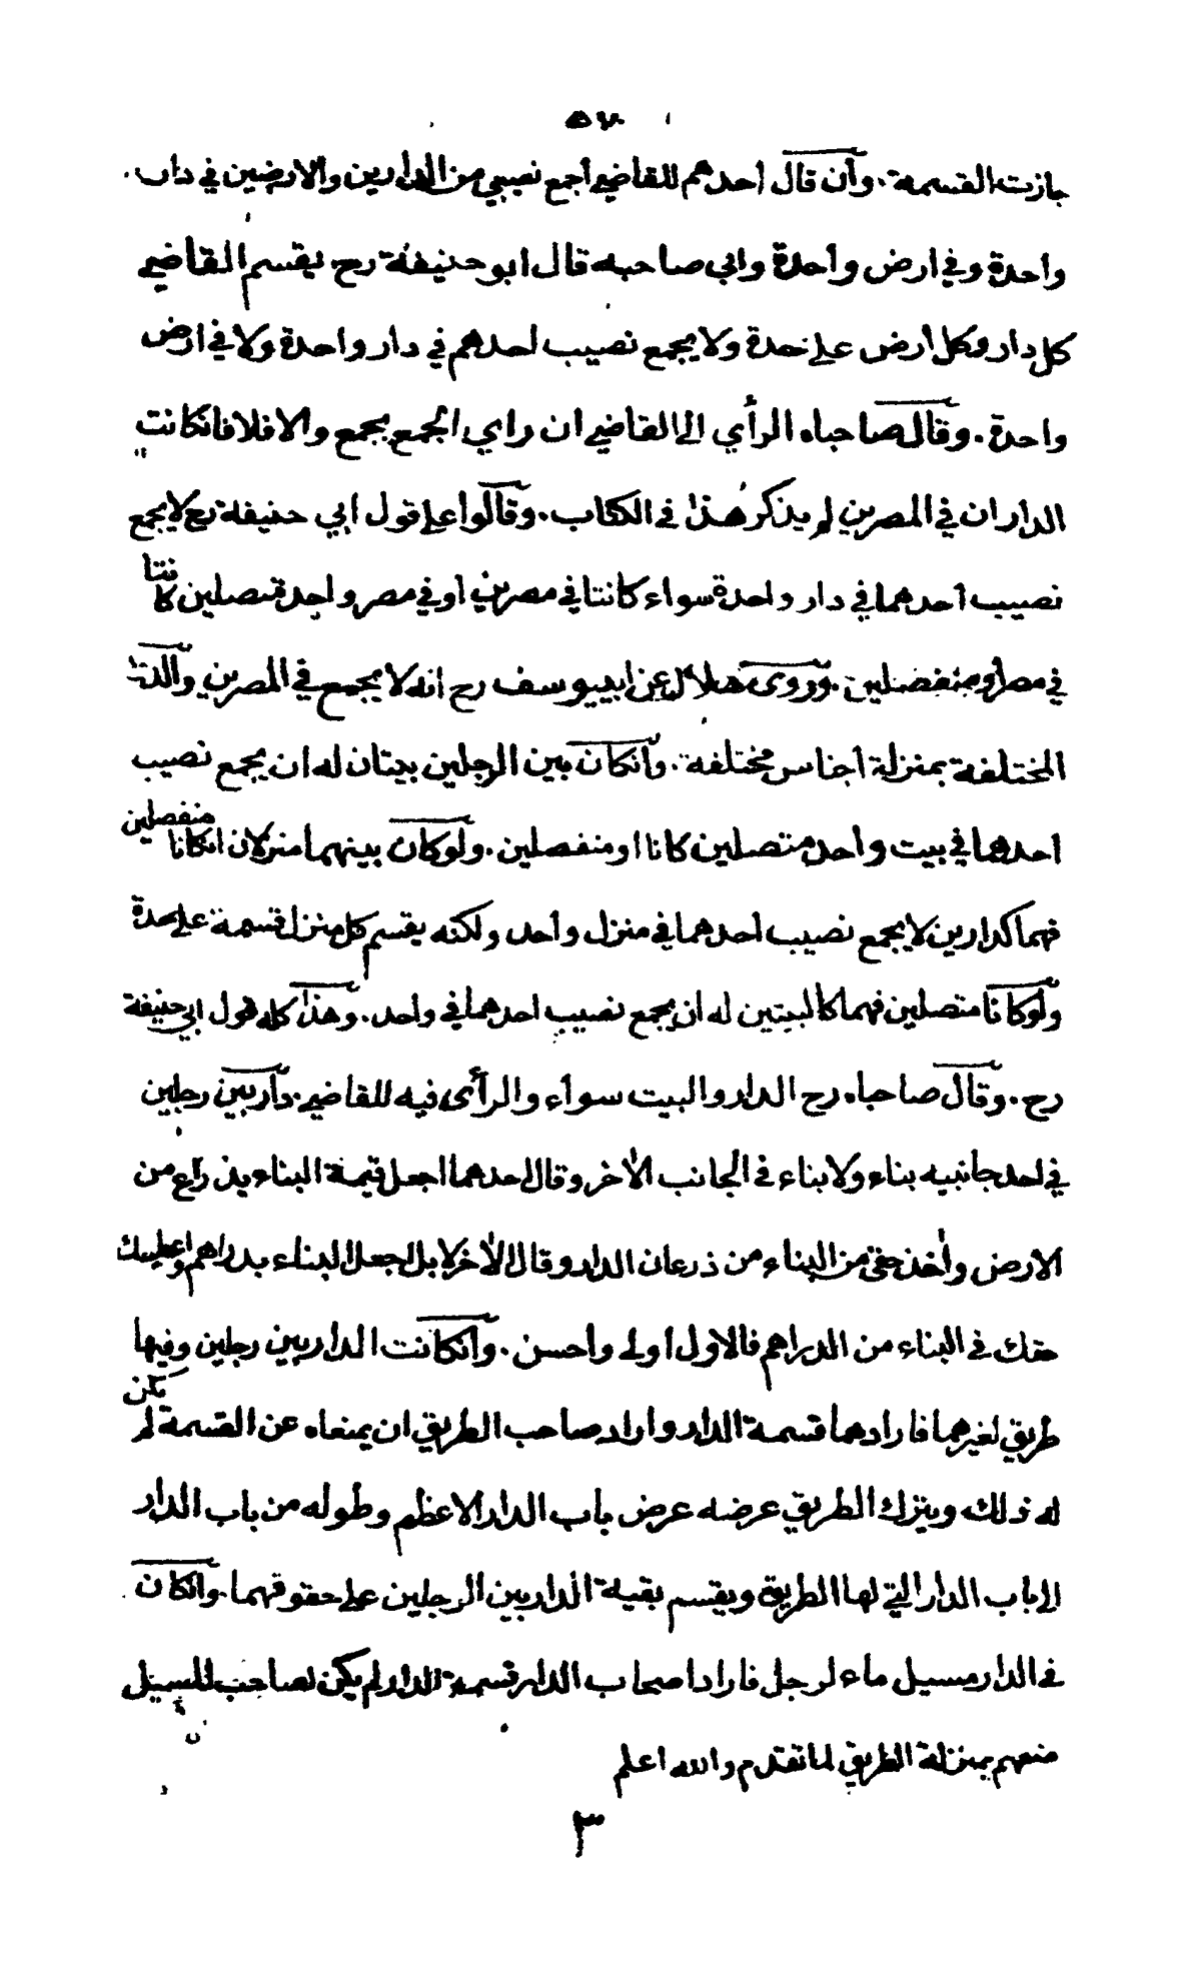 جازت القسمة. وان قال احدهم للقاضي اجمع نصيبي من الدارين والارضين في دار
واحدة وفي ارض واحدة وابى صاحبه قال ابو حنيفة رح يقسم القاضي
كل دار وكل ارض على حدة ولا يجمع نصيب احدهم في دار واحدة ولا في ارض
واحدة. وقال صاحباه الرأي الى القاضي ان راى الجمع يجمع والا فلا فانكانت
الداران في المصرين لم يذكر هذا في الكتاب. وقالوا على قول ابي حنيفة رح لا يجمع
نصيب احدهما في دار واحدة سواء كانتا في مصرين او في مصر واحد متصلين كانتا
في مصر او منفصلين. وروى هلال عن ابي يوسف رح انه لا يجمع في المصرين والدار
المختلفة بمنزلة اجناس مختلفة. وانكان بين الرجلين بيتان له ان يجمع نصيب
احدهما في بيت واحد متصلين كانا او منفصلين. ولوكان بينهما منزلان انكانا منفصلين
فهما كدارين لا يجمع نصيب احدهما في منزل واحد ولكنه يقسم كل منزل قسمة على حدة
ولوكانا متصلين فهما كالبيتين له ان يجمع نصيب احدهما في واحد. وهذا كله قول ابي حنيفة
رح. وقال صاحباه رح الدار والبيت سواء والرأى فيه للقاضي. دار بين رجلين
في احد جانبيه بناء ولا بناء في الجانب الآخر وقال احدهما اجعل قيمة البناء بذراع من
الارض وأخذ حقى من البناء من ذرعان الدار وقال الآخر لا بل اجعل البناء بدراهم واعطيك
حقك في البناء من الدراهم فالاول اولى واحسن. وانكانت الدار بين رجلين وفيها
طريق لغيرهما فارادهما قسمة الدار واراد صاحب الطريق ان يمنعاه عن القسمة لم يكن
له ذلك ويترك الطريق عرضه عرض باب الدار الاعظم وطوله من باب الدار
الى باب الدار التي لها الطريق ويقسم بقية الدار بين الرجلين على حقوقهما. وانكان
في الدار مسيل ماء لرجل فاراد اصحاب الدار قسمة الدار لم يكن لصاحب المسيل
منعهم بمنزلة الطريق لما تقدم والله اعلم
٣